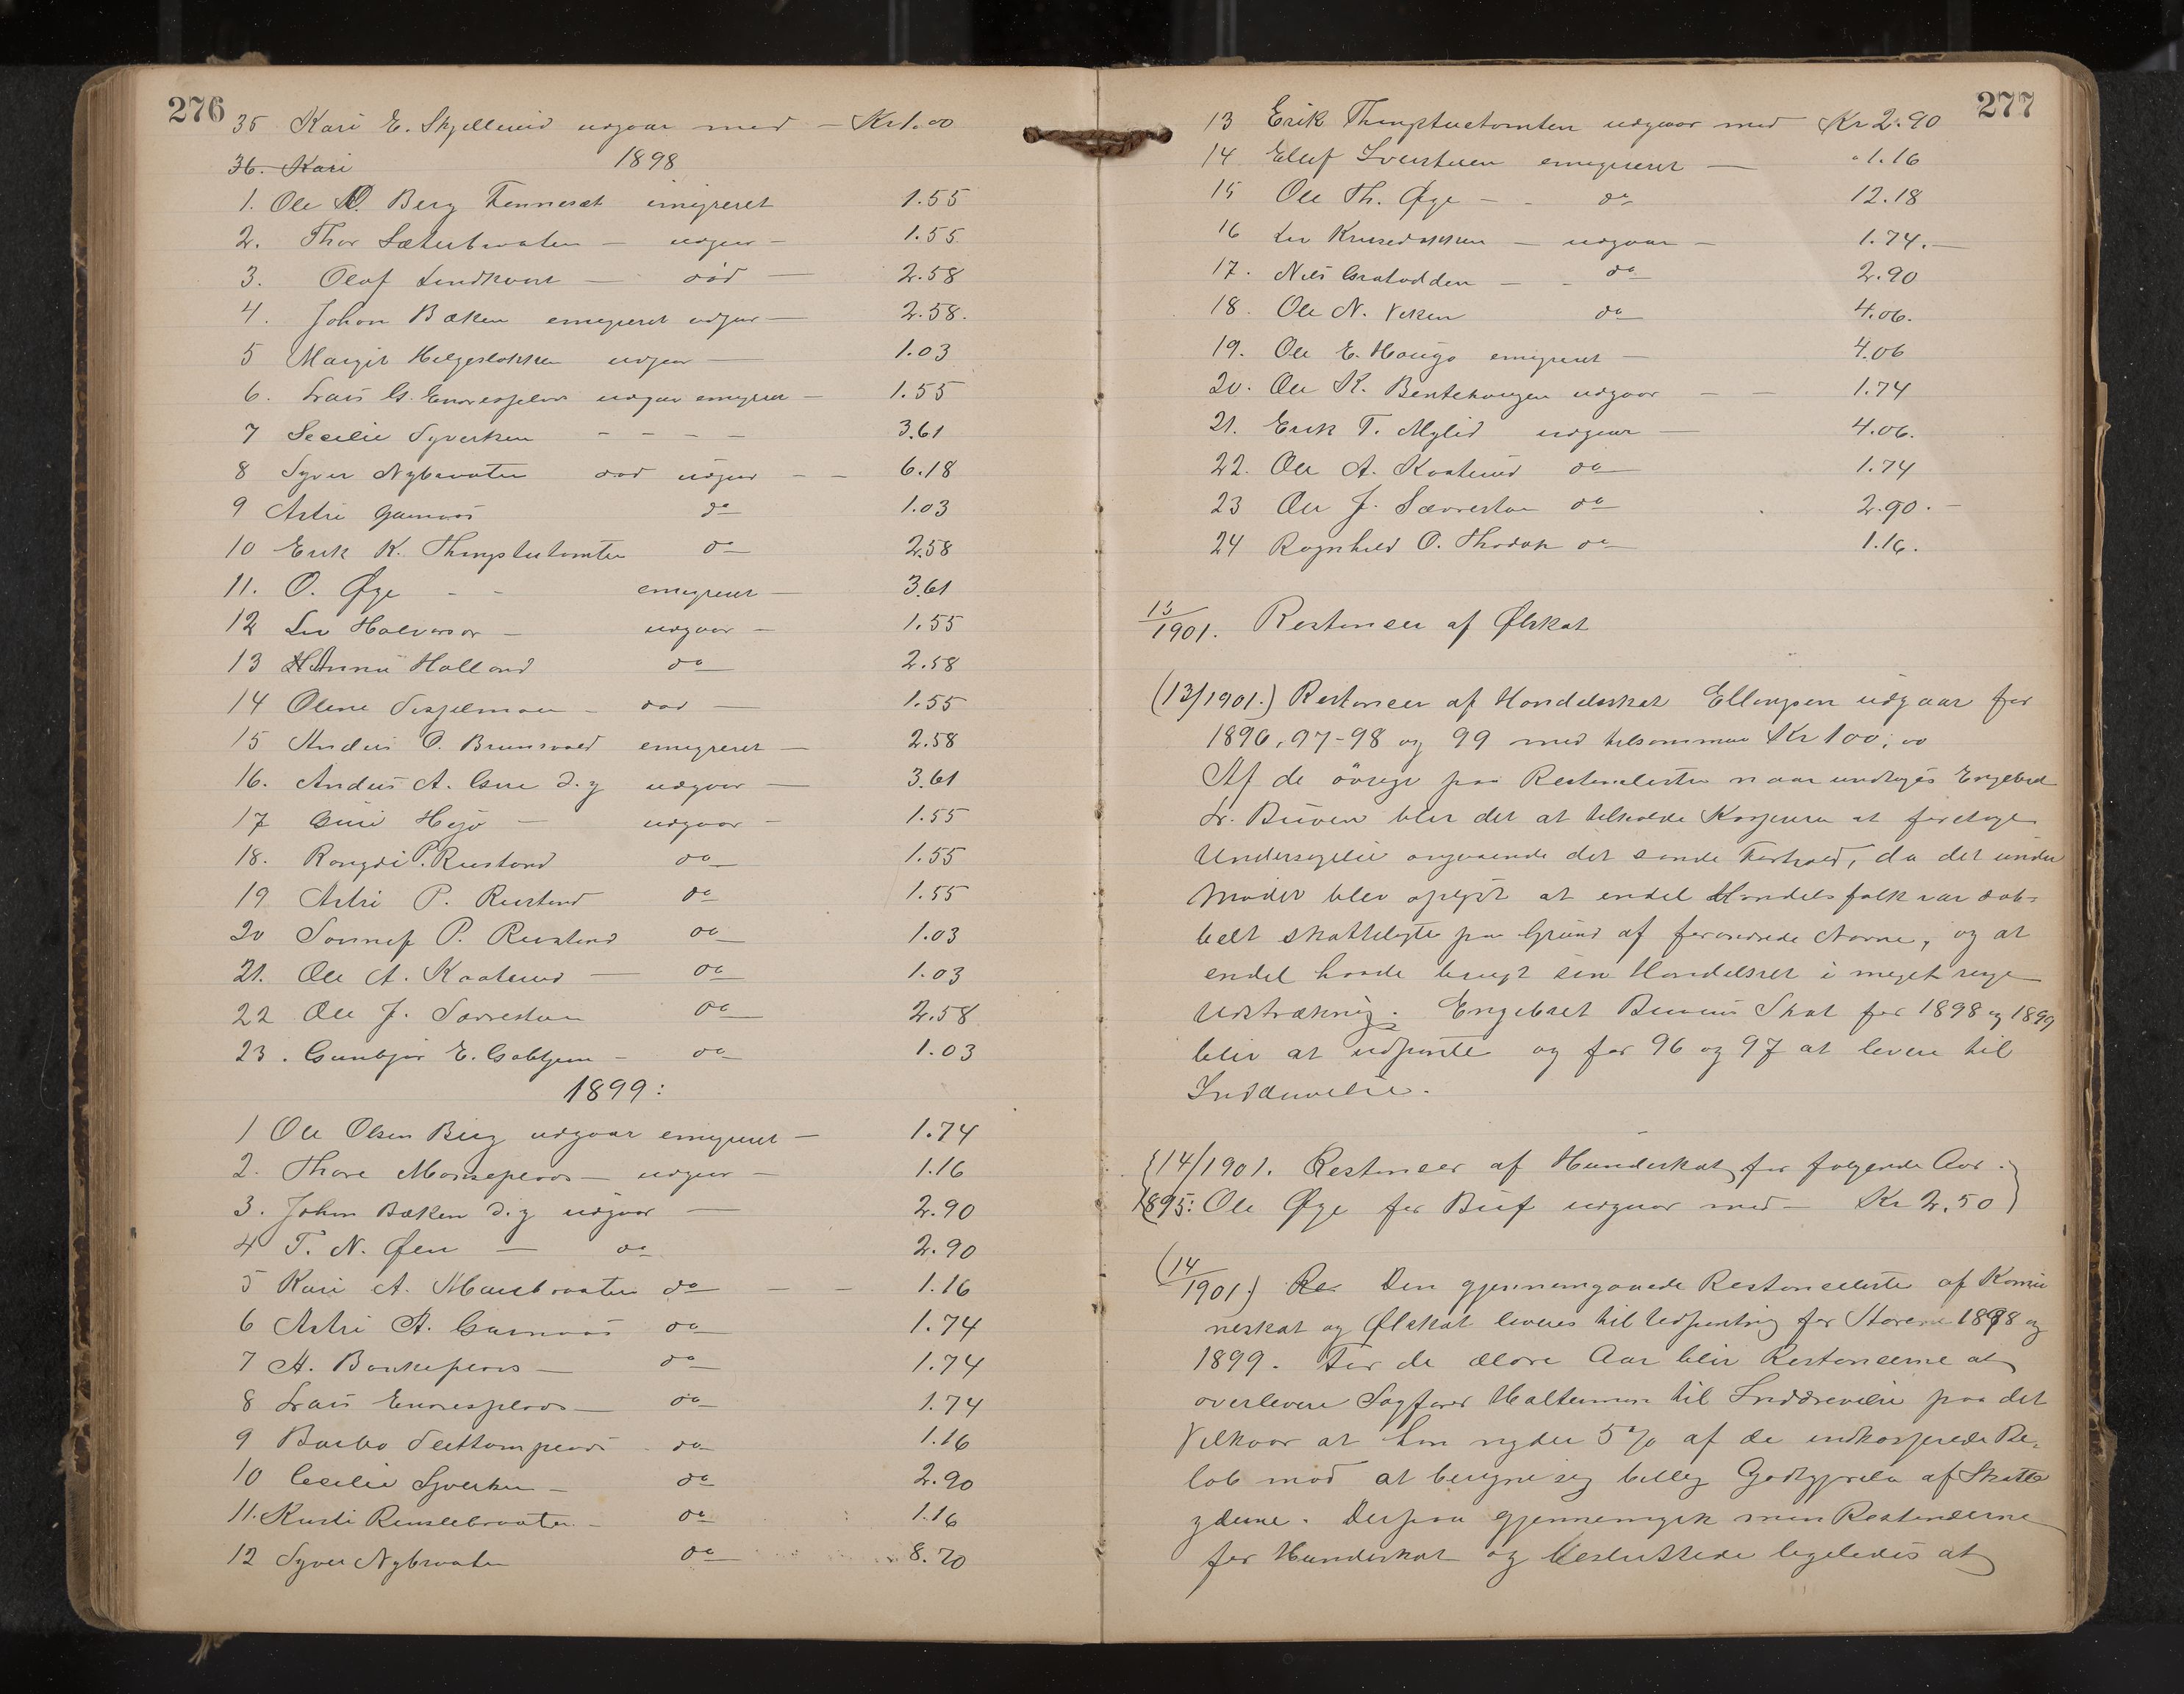 276
35 Kari E. Skjellerud udgaar med – Kr 1.00
36. Kari 1898
1. Ole O. Berg emigreret 1.55
2. Thor Sæterbraaten – udgaar – 1.55
3. Olaf Lindkvist – død – 2.58
4. Johan Bæken emigreret udgaar – 2.58.
5 Margit Helgesløkken udgaar – 1.03
6. Lars G. Endresplads udgaar emigreret – 1.55
7 Secelie Syverken – – – – 3.61
8 Syver Nybraaten død udgaar – – 6.18
9 Astri Garnaas do 1.03
10 Erik K. Thingstutomten do 2.58
11. O. Øye – – emigreret – 3.61
12 Liv Halvorsdr – udgaar – 1.55
13 Anne Halland do 2.58
14 Olene – død – 1.55
15 Anders O. Brunsvold emigreret – 2.58
16. Anders A. d.y udgaar – 3.61
17 Guri – udgaar – 1.55
18. Rangdi P. Rustand do 1.55
19 Astri P. Rustand do 1.55
20 Sønnef P. Rustand do 1.03
21. Ole A. Kaaterud – do 1.03
22 Ole J. Sævrestuen do 2.58
23. Gunbjør E. – do 1.03
1899:
1 Ole Olsen Berg udgaar emigreret – 1.74
2. Thore Monseplads – udgaar – 1.16
3. Johan Bæken d.y udgaar – 2.90
4 T. N. Øen – do 2.90
5 Kari A. do – – 1.16
6 Astri A. Garnaas do 1.74
7 A. Bankeplads – do 1.74
8 Lars Endresplads – do 1.74
9 Barbo do 1.16
10 Cecelie Syverken – do 2.90
11. Kristi – do 1.16
12 Syver Nybraaten do 8.70
277
13 Erik Thingstutomten udgaar med Kr 2.90
14 Eluf emigreret – 1.16
15 Ole Th. Øye – – do 12.18
16 Liv – udgaar – 1.74. –
17. Nils Gratodden – – do 2.90
18. Ole N. Veken do 4.06.
19. Ole E. Haugo emigreret – 4.06
20. Ole K. Bentehaugen udgaar – – 1.74
21. Erik T. Mylid udgaar – 4.06.
22. Ole A. Kaaterud do 1.74
23 Ole J. Sævrestuen do 2.90. –
24 Ragnhild O. do 1.16.
13/1901. Restancer af Ølskat
(13/1901.) Restancer af Handelsskat Ellingsen udgaar for
1896, 97-98 og 99 med tilsammen Kr 100,00
Af de øvrige paa Restancelisten naar undtages Engebret
L. Bruven blir det at tilholde Kasseren at foretage
Undersøgelse angaaende det sande Forhold, da det under
Mødet blev oplyst at endel Handelsfolk var dob-
belt skattelagte paa Grund af forandrede Navne, og at
endel havde brugt sin Handelsret i meget ringe
Udstrækning. Engebret Bruvens Skat for 1898 og 1899
blir at udpante og for 96 og 97 at levere til
Inddrivelse.
{14/1901. Restancer af Hundeskat for følgende Aar.
1895: Ole Øye for Bief udgaar med – Kr 2.50}
(14/1901.) Re Den gjennemgaaede Restanceliste af Kommu
neskat og Ølskat leveres til Udpantning for Aarene 1898 og
1899. For de ældre Aar blir Restancerne at
overlevere Sagfører til Inddrivelse paa det
Vilkaar at han nyder 5% af de indkasserede Be-
løb mod at beregne sig billig Godtgjørelse af Skatte
yderne. Derpaa gjennemgik man Restancerne
for Hundeskat og besluttede ligeledes at